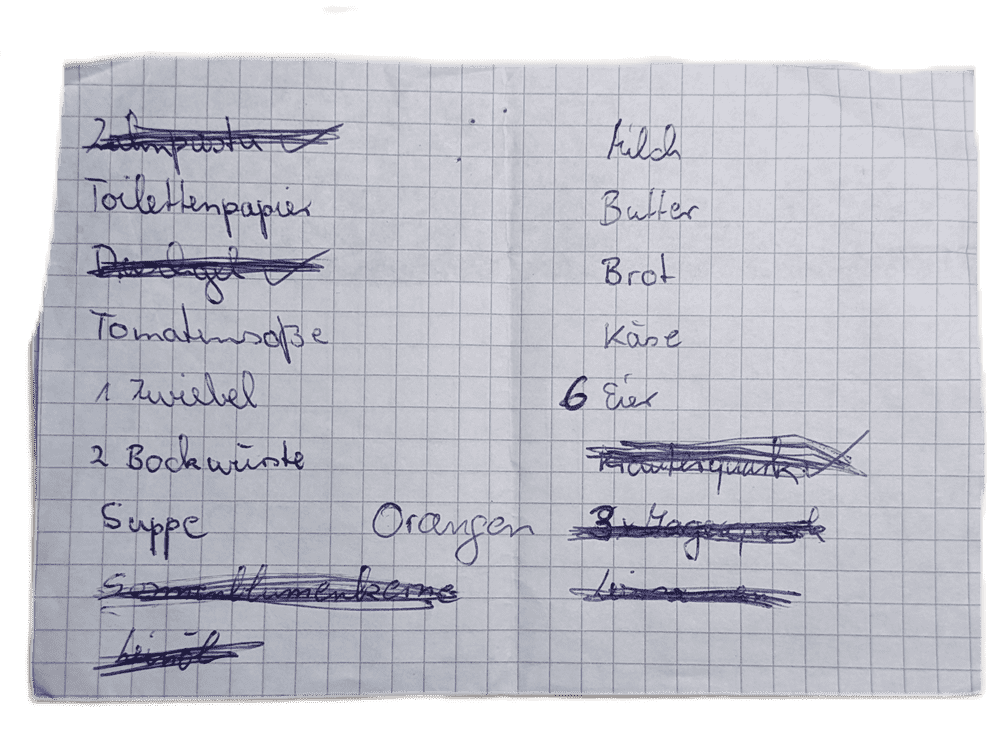 Zahnpasta
Toilettenpapier
Duschgel
Tomatensoße
1 Zwiebel
2 Bockwürste
Suppe
Sonnenblumenkerne
Leinöl
Orangen
Milch
Butter
Brot
Käse
6 Eier
Kräuterquark
3 x
Leinsamen